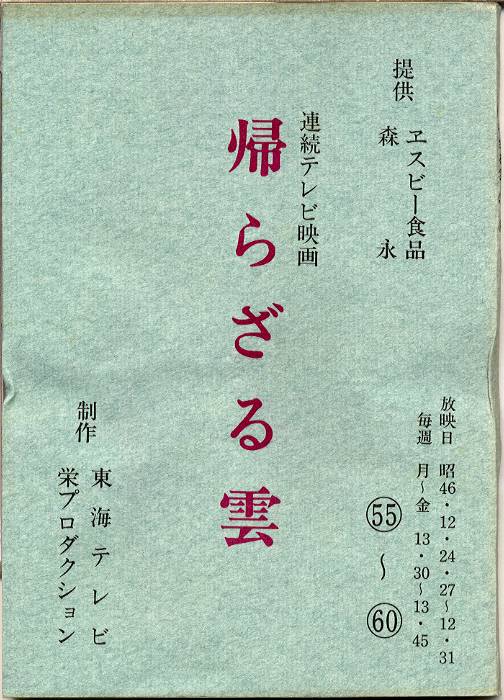 提供 ヱスビー食品
森 永
連続テレビ映画
帰らざる雲
放映日 昭46・12・24・27〜12・31
毎週 月〜金 13・30〜13・45
㊺〜60
制作 東海テレビ
栄プロダクション